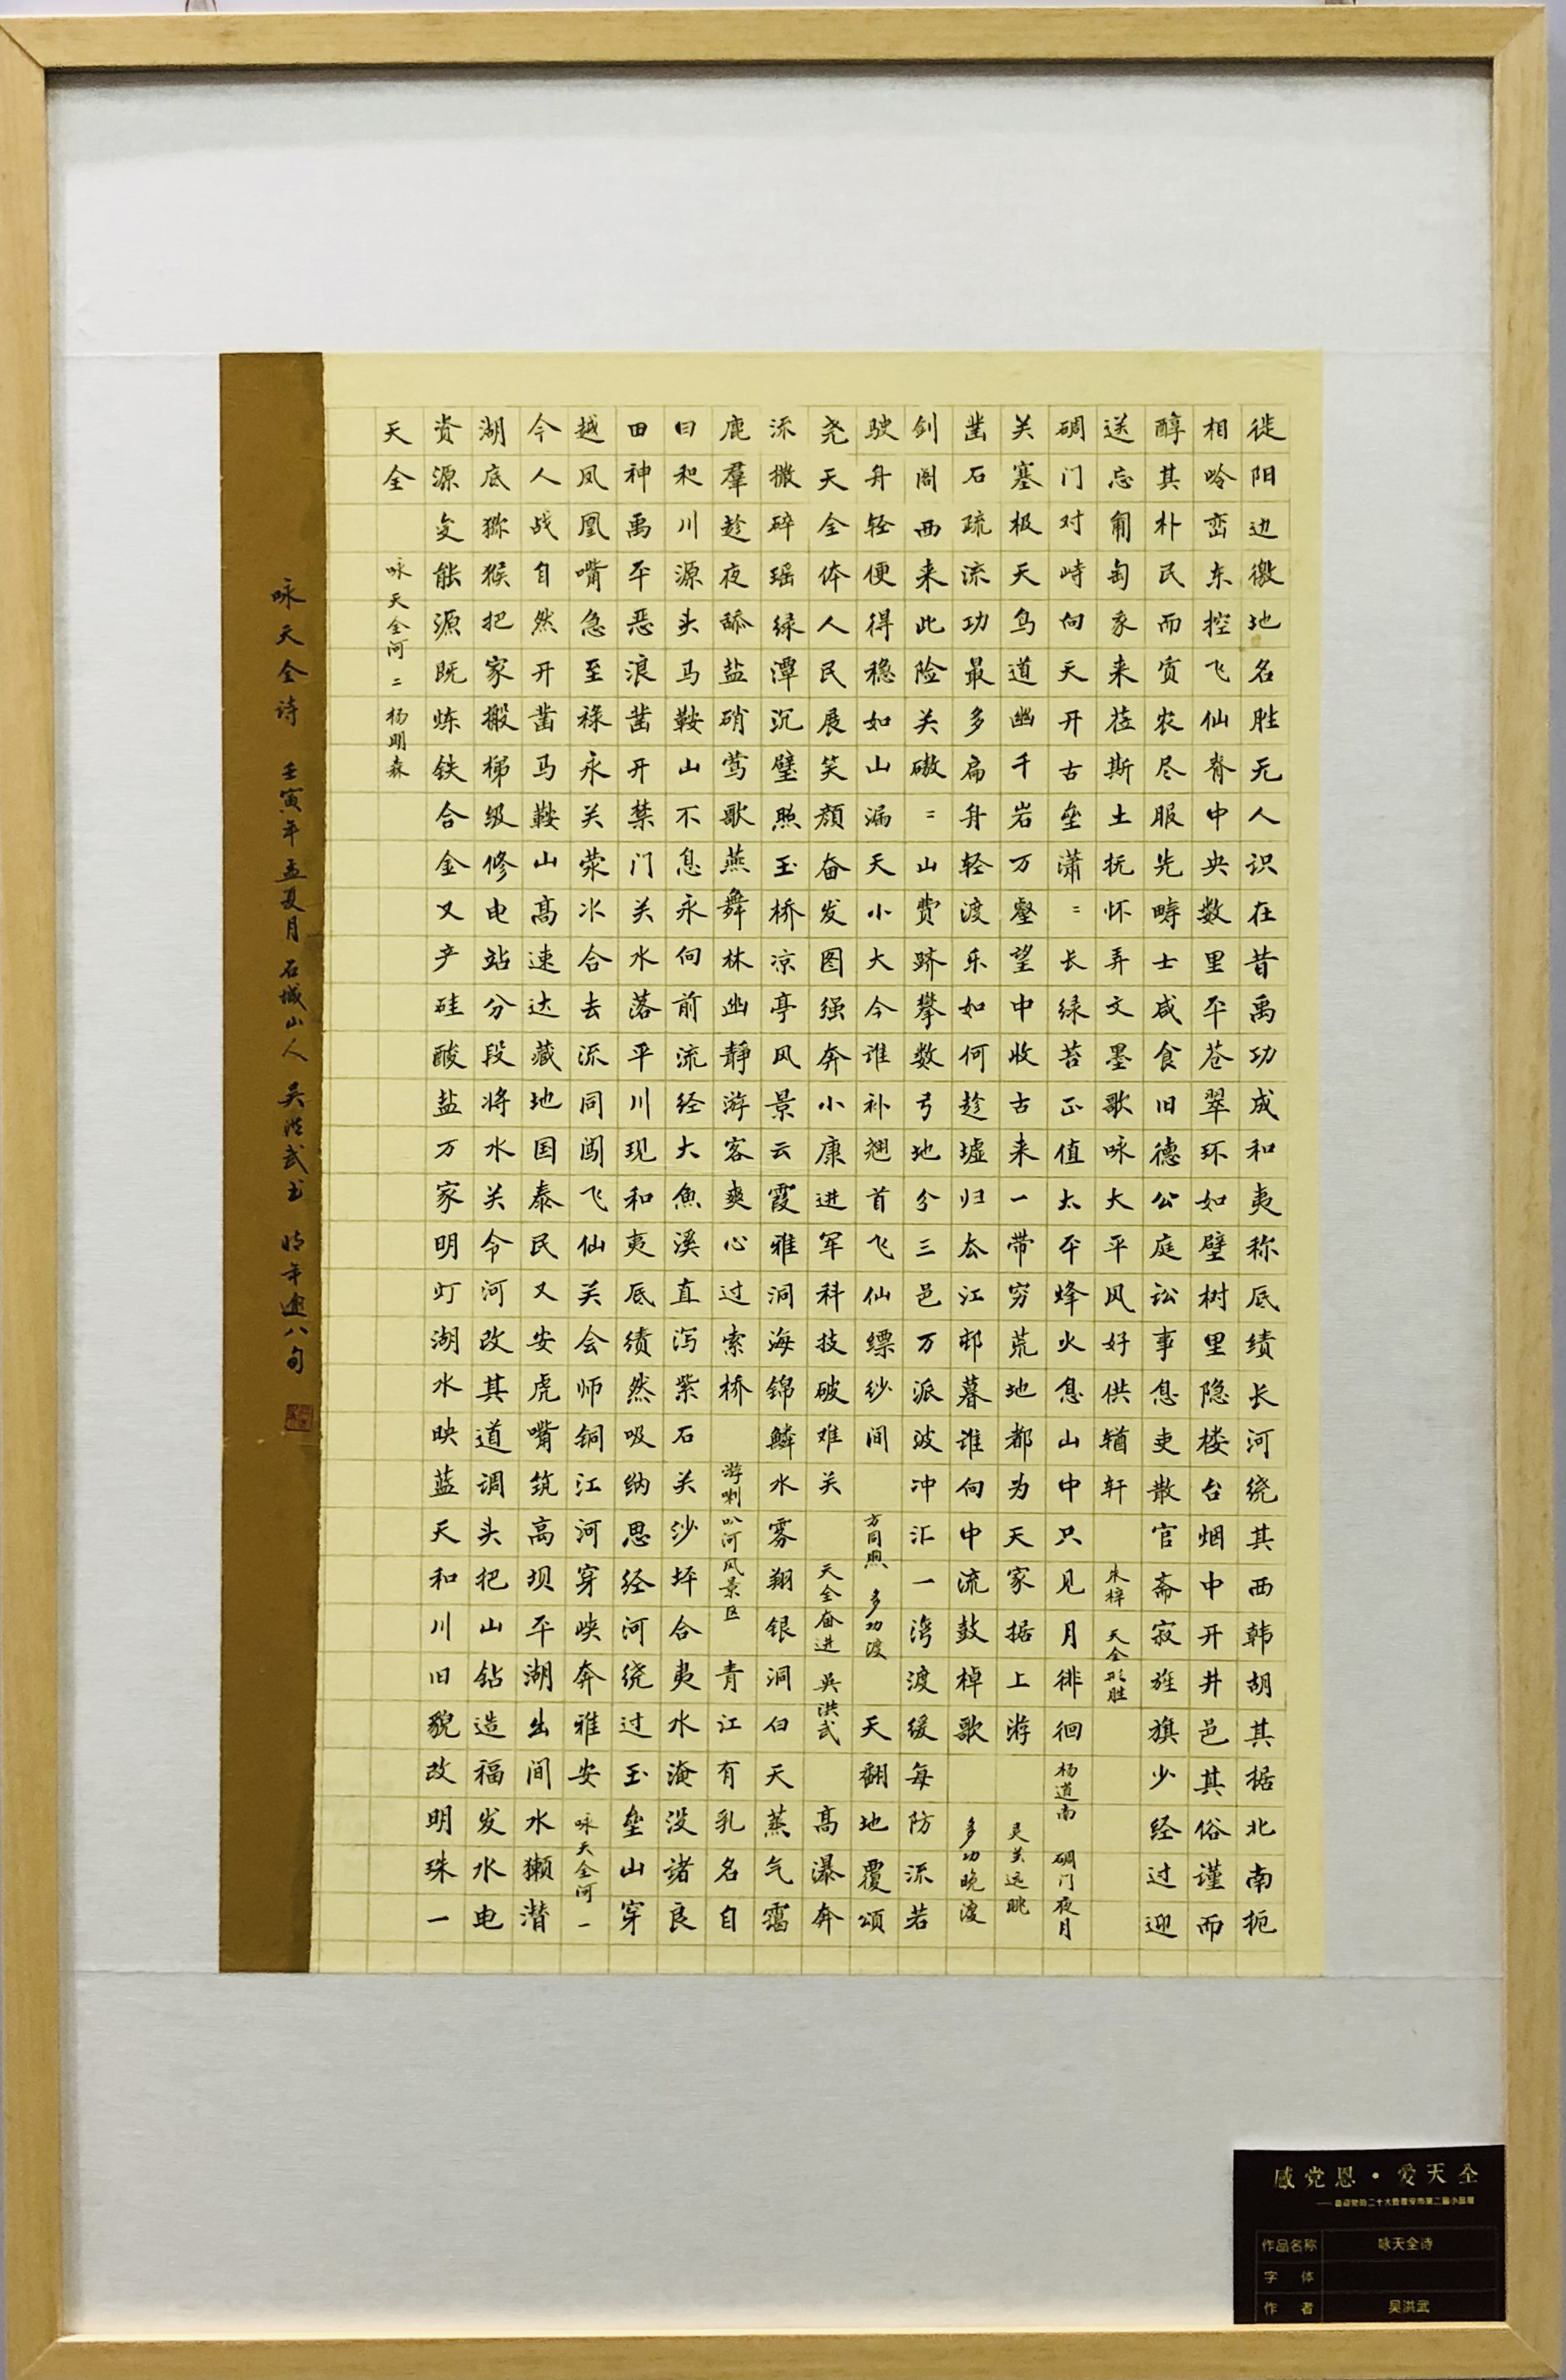 徙阳边徼地名胜无人识在昔禹功成和夷称底绩长河绕其西韩胡其据北南扼
相岭峦东控飞仙脊中央数里平苍翠环如壁树里隐楼台烟中开井邑其俗谨而
醇其朴民而质农尽服先畴士咸食旧德公庭讼事息吏散官斋寂旌旗少经过迎
送忘匍匐来莅斯土抚怀弄文墨歌咏大平风好供輶轩 朱梓 天全形胜
碉门对峙向天开古垒潇=长绿苔正值太平烽火息山中只见月徘徊 杨道南 碉门夜月
关塞极天鸟道幽千岩万壑望中收古来一带穷荒地都为天家据上游 灵关远眺
凿石疏流功最多扁舟轻渡乐如何趁墟归去江邨暮谁向中流鼓棹歌 多功晚渡
剑阁西来此险关磝=山费跻攀数弓地分三邑万派波冲汇一湾渡缓每防流若
驶舟轻便得稳如山漏天小大今谁补翘首飞仙缥纱间 方同煦 多功渡 天翻地覆颂
尧天全体人民展笑颜奋发图强奔小康进军科技破难关 天全奋进 吴洪武 高瀑奔
流撒碎瑶绿潭沉璧照玉桥凉亭风景云霞雅洞海锦鳞水雾翔银洞白天蒸气霭
鹿群趁夜舔盐硝莺歌燕舞林幽静游客爽心过索桥 游喇叭河风景区 青江有乳名自
曰和川源头马鞍山不息永向前流经大鱼溪直泻紫石关沙坪合夷水淹没诸良
田神禹平恶浪凿开禁门关水落平川现和夷底绩然吸纳思经河绕过玉垒山穿
越凤凰嘴急至禄永关荥水合去流同闯飞仙关会师铜江河穿峡奔雅安 咏天全河一
今人战自然开凿马鞍山高速达藏地国泰民又安虎嘴筑高坝平湖出间水獭潜
湖底猕猴把家搬梯级修电站分段将水关令河改其道调头把山钻造福发水电
资源变能源既炼铁合金又产硅酸盐万家明灯湖水映蓝天和川旧貌改明珠一
天全 咏天全河二 杨明森
咏天全诗 壬寅年孟夏月 石城山人 吴洪武书 时年逾八旬
感党恩·爱天全
作品名称 咏天全诗
字体
作者 吴洪武